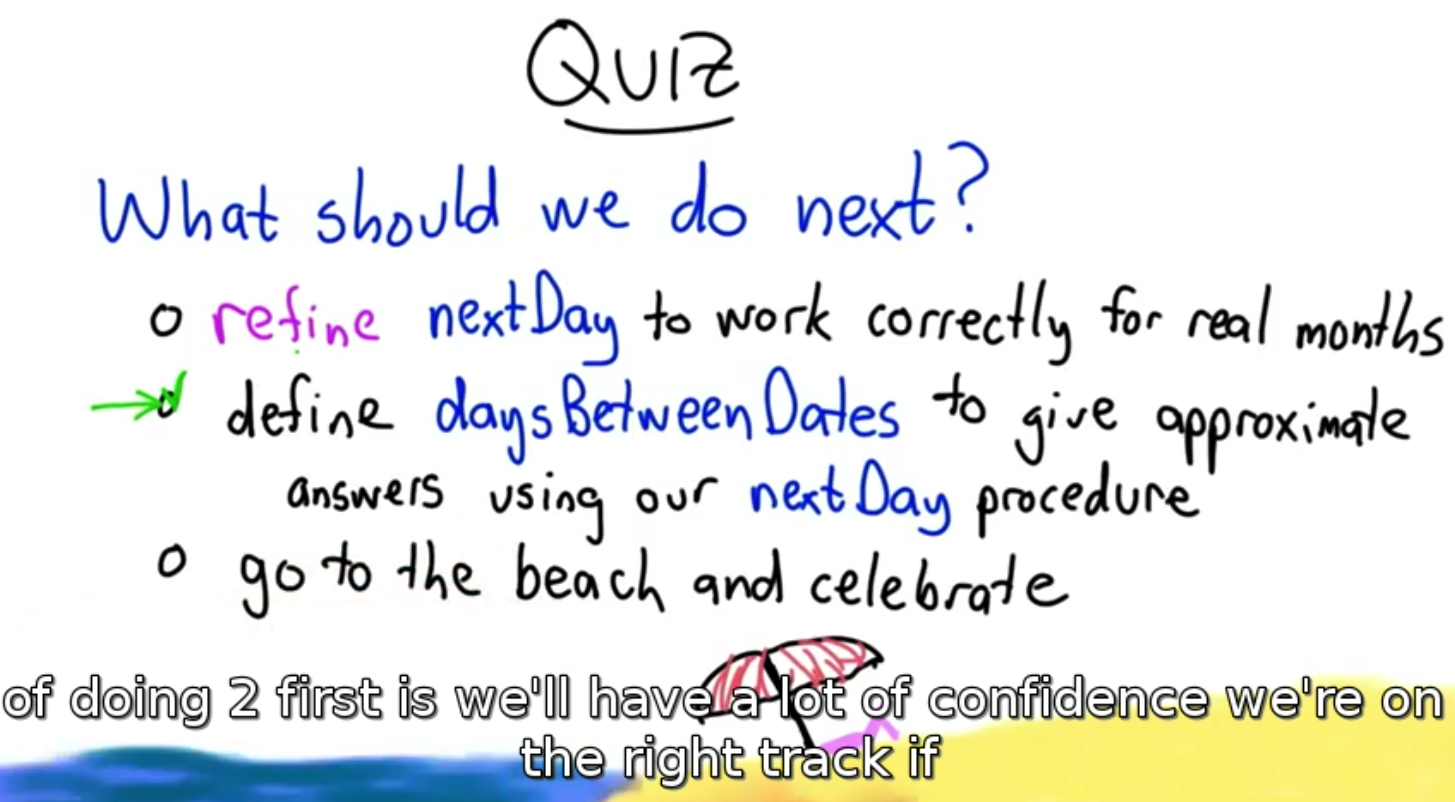 QUIZ
What should we do next?
o refine nextDay to work correctly for real months
o define daysBetweenDates to give approximate
answers using our nextDay procedure
o go to the beach and celebrate
of doing 2 first is we'll have a lot of confidence we're on
the right track if